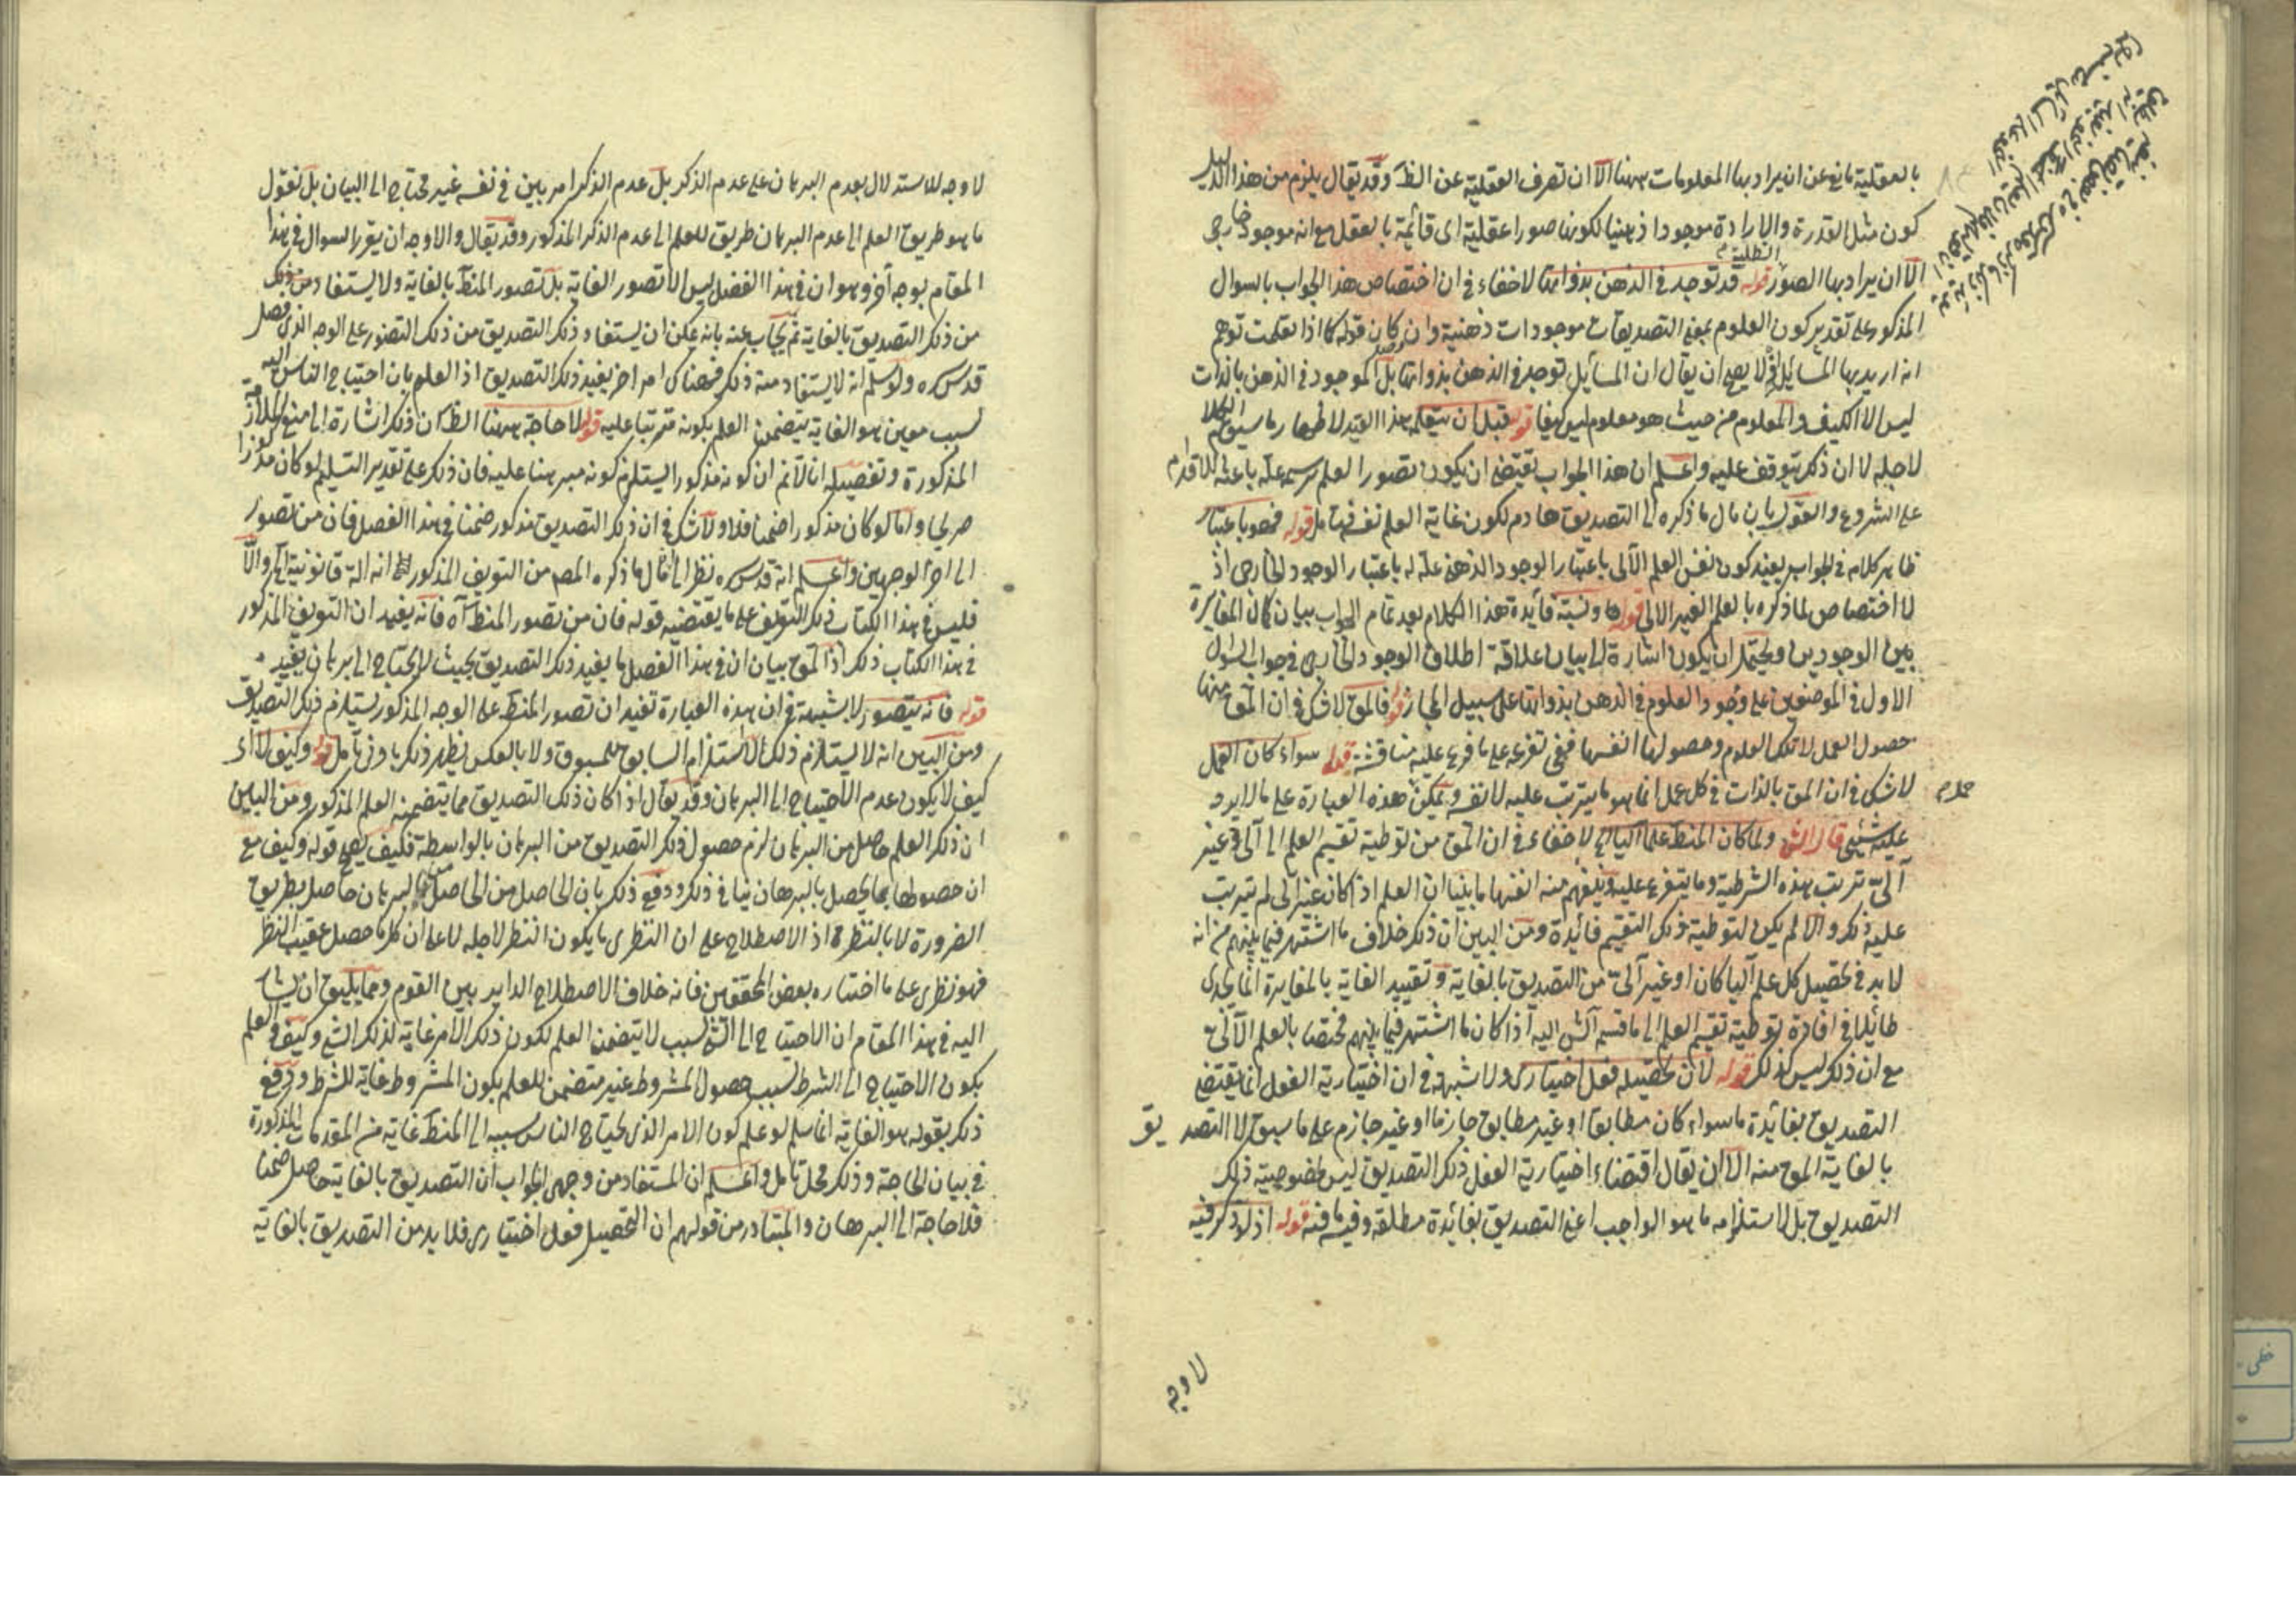 بالعقلية مانع عن ان يراد بها المعلومات ههنا الا ان تصرف العقلية عن الظ وقد يقال يلزم من هذا الدليل
كون مثل القدرة والارادة موجودا ذهنيا لكونها صورا عقلية اى قائمة بالعقل مع انه موجود خارجى
الا ان يراد بها الصور الظلية قوله قد توجد فى الذهن بذواتها لا خفاء فى ان اختصاص هذا الجواب بالسوال
المذكور على تقدير كون العلوم بمعنى التصديقات موجودات ذهنية وان كان قوله كما اذا تعلمت توهم
انه اريد بها المسائل لا يصح ان يقال ان المسائل توجد فى الذهن بذواتها بل الموجود فى الذهن بالذات
ليس الا الكيف والمعلوم من حيث هو معلوم ليس كيفا قوله قبل ان يتعلم هذا القيد لاظهار ما سيق الكلام
لاجله لا ان ذكر يتوقف عليه واعلم ان هذا الجواب يقتضى ان يكون تصور العلم برسمه علة باعثة للاقدام
على الشروع والقول بان مال ما ذكره الى التصديق هادم لكون غاية العلم نفسه فتامل قوله فهو باعتبار
ظاهر كلامه فى الجواب يفيد كون نفس العلم الآلى باعتبار الوجود الذهنى علة له باعتبار الوجود الخارجى اذ
لا اختصاص لما ذكره بالعلم الغير الالى قوله فائدة هذا الكلام بعد تمام الجواب بيان كمال المغايرة
بين الوجودين ويحتمل ان يكون اشارة الى بيان علاقة اطلاق الوجود الخارجى فى جواب السوال
الاول فى الموضعين على وجود العلوم فى الذهن بذواتها على سبيل المجاز قوله فالمق لا شك فى ان المق منها
حصول العمل لا تلك العلوم وحصولها انفسها ففى تفرعه على ما فرع عليه مناقشة قوله سواء كان العمل
لا شك فى ان المق بالذات فى كل عمل انما هو ما يترتب عليه لا نفسه ويمكن هذه العبارة على ما لا يرد
حمل م
عليه شيئى قال الش ولما كان المنطق علما آليا الخ لا خفاء فى ان المق من توطية تقسيم العلم الى آلى وغير
آلى ترتب هذه الشرطية وما يتفرع عليه ويفهم منه انفهاما بينا ان العلم اذا كان غير آلى لم يترتب
عليه ذكر والا لم يكن لتوطية ذلك التقسيم فائدة ومن البين ان ذكر خلاف ما اشتهر فيما بينهم من انه
لا بد فى تحصيل كل علم آليا كان او غير آلى من التصديق بالغاية وتقييد الغاية بالمغايرة انما يجدى
طائلا فى افادة توطية تقسيم العلم الى ما قسم الش اليه اذا كان ما اشتهر فيما بينهم مختصا بالعلم الآلى
مع ان ذكر ليس كذلك قوله لان تحصيله فعل اختيارى ولا شبهة فى ان اختيارية الفعل انما يقتضى
التصديق بفائدة ما سواء كان مطابقا او غير مطابق جازما او غير جازم على ما سبق لا التصديق
بالغاية المق منه الا ان يقال اقتضاء اختيارية الفعل ذكر التصديق ليس لخصوصية ذلك
التصديق بل لاستلزامه ما هو الواجب اعنى التصديق بفائدة مطلقة وفيه ما فيه قوله اذ لو ذكر فيه
لا وجه
لا وجه للاستدلال بعدم البرهان على عدم الذكر بل عدم الذكر امر بين فى نفسه غير محتاج الى البيان بل نقول
ما هو طريق العلم الى عدم البرهان طريق للعلم الى عدم الذكر المذكور وقد يقال والاوجه ان يقرر السوال فى هذا
المقام بوجه آخر وهو ان فى هذا الفصل ليس الا تصور الغاية بل تصور المنطق بالغاية ولا يستفاد
من ذكر التصديق بالغاية ثم يجاب عنه بانه يمكن ان يستفاد ذلك التصديق من ذلك التصور على الوجه الذى فصل
قدس سره ولو سلم انه لا يستفاد منه ذكر فهناك امر اخر يفيد ذلك التصديق اذ العلم بان احتياج الناس اليه
لسبب معين هو الغاية يتضمن العلم بكونه مترتبا عليه قوله لا حاجة ههنا الظ ان ذكر اشارة الى منع الملازمة
المذكورة وتفصيله انا لا نم ان كونه مذكورا يستلزم كونه مبرهنا عليه فان ذكر على تقدير التسليم لو كان مذكورا
صريحا واما لو كان مذكورا ضمنا فلا ولا شك فى ان ذلك التصديق مذكور ضمنا فى هذا الفصل فان من تصور
الى اخر الوجهين واعلم انه قدس سره نظر الى مال ما ذكره المصم من التعريف المذكور انه الة قانونية الخ والا
فليس فى هذا الكتاب ذكر التعريف على ما يقتضيه قوله فان من تصور المنطق اه فانه يفيد ان التعريف المذكور
فى هذا الكتاب ذلك اذ المق بيان ان فى هذا الفصل ما يفيد ذلك التصديق بحيث لا يحتاج الى برهان يفيد
قوله فانه يتصور لا شبهة فى ان هذه العبارة تفيد ان تصور المنطق على الوجه المذكور يستلزم ذلك التصديق
ومن البين انه لا يستلزم ذلك الاستلزام السابق للمسبوق ولا بالعكس يظهر ذكر بادنى تامل قوله وكيف لا اى
كيف لا يكون عدم الاحتياج الى البرهان وقد يقال اذا كان ذلك التصديق مما يتضمنه العلم المذكور ومن البين
ان ذكر العلم حاصل من البرهان لزم حصول ذلك التصديق من البرهان بالواسطة فكيف يصح قوله وكيف مع
ان حصولها بما يحصل بالبرهان ينافى ذلك ودفع ذلك بان الحاصل من الحاصل من البرهان حاصل بطريق
الضرورة لا بالنظر اذ الاصطلاح على ان النظرى ما يكون النظر لاجله لا على ان كل ما حصل عقيب النظر
فهو نظرى على ما اختاره بعض المحققين فانه خلاف الاصطلاح الداير بين القوم ومما يليق ان يشار
اليه فى هذا المقام ان الاحتياج الى الشئ لسبب لا يتضمن العلم لكون ذلك الامر غاية لذلك الشئ وكيف والعلم
بكون الاحتياج الى الشرط لسبب حصول المشروط غير متضمن للعلم بكون المشروط غاية للشرط ودفع
ذلك بقوله هو الغاية انما سلم لو علم كون الامر الذى يحتاج الناس بسببه الى المنطق غاية من المقدمات المذكورة
فى بيان الحاجة وذلك محل تامل واعلم ان المستفاد من وجهى الجواب ان التصديق بالغاية حاصل ضمنا
فلا حاجة الى البرهان والمتبادر من قولهم ان التحصيل فعل اختيارى فلا بد من التصديق بالغاية
خطى